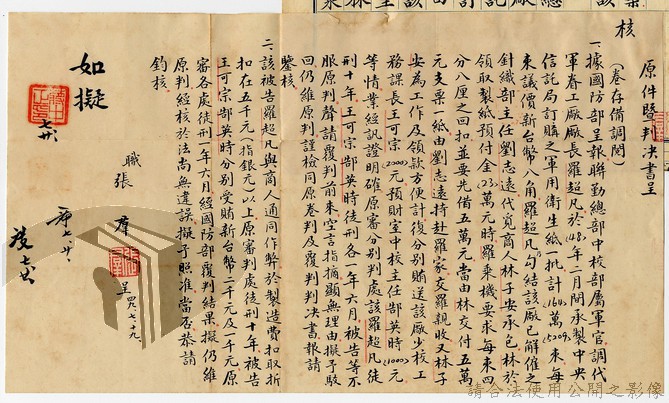 原件暨判决書呈
核
(卷存備調閱)
一、據國防部呈報聯勤總部中校部屬軍官調代
軍眷工廠廠長羅超凡於(48)年二月間承製中央
信託局訂購之軍用衛生紙一批計(164)萬(5209)來每
來議價新台幣八角羅超凡勾結該廠已解僱之
針織部主任劉志遠代覓商人林子安承包林於
領取製紙預付金(23)萬元時羅乘機要求每來四
分八厘之回扣並要先借五萬元當由林交付五萬
元支票一紙由劉志遠持赴羅家交羅親收又林子
安為工作及領款方便計後分別賄送該廠少校工
務課長王可宗(2000)元預財室中校主任郜英時(1000)元
等情業經訊證明確原審分別判處該羅超凡徒
刑十年王可宗郜英時徒刑各一年六月被告等不
服原判聲請覆判前來空言指摘顯無理由擬予駁
回仍維原判謹檢同原卷判及覆判判决書報請
鑒核
二、該被告羅超凡與商人通同作弊於製造費扣取折
扣在五千元(指銀元)以上原審判處徒刑十年被告
王可宗郜英時分別受賄新台幣二千元及一千元原
審各處徒刑一年六月經國防部覆判結果擬仍維
原判經核於法尚無違誤擬予照准當否恭請
鈞核
職
張羣
呈
四九七、十九
如擬
請合法使用公開之影像